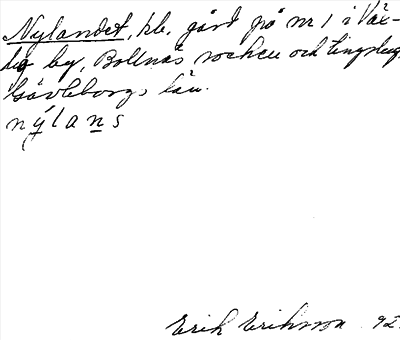 Nylandet, kb. gård på nr 1 i Väx-
bo by, Bollnäs socken och tingslag,
Gävleborgs län.
nýlans
Erik Eriksson 92